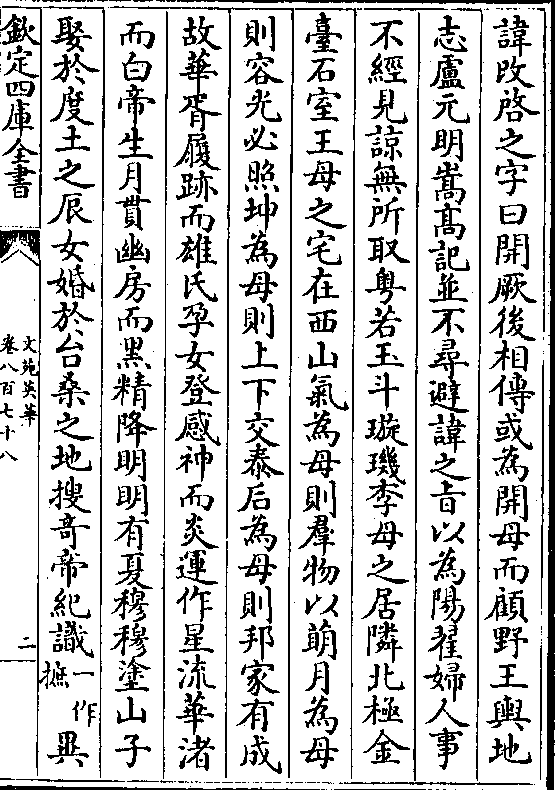 諱改啓之字曰開厥後相傳或為開母而顧野王輿地
志盧元明嵩髙記並不尋避諱之㫖以為陽翟婦人事
不經見諒無所取粤若玉斗璇璣李母之居隣北極金
臺石室王母之宅在西山氣為母則羣物以萌月為母
則容光必照坤為母則上下交泰后為母則邦家有成
故華胥履跡而雄氏孕女登感神而炎運作星流華渚
而白帝生月貫幽房而黑精降明明有夏穆穆塗山子
娶於度土之辰女婚於台桑之地搜竒帝紀識一作摭異
欽定四庫全書
文苑英華
卷八百七十八
二